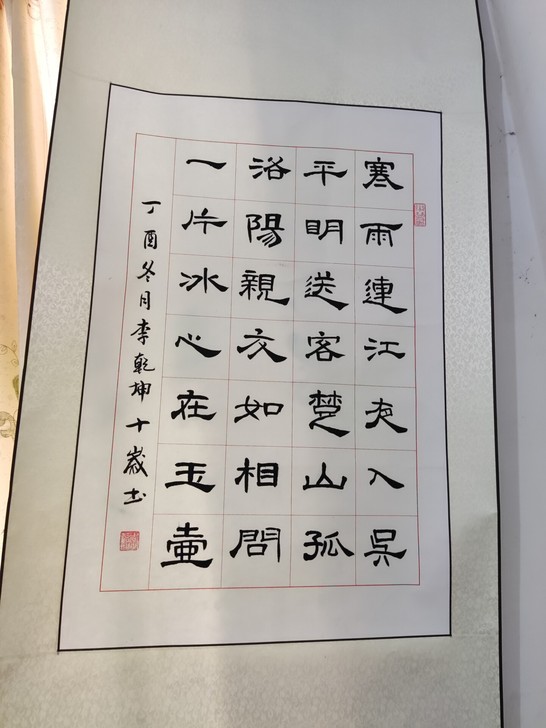 寒雨連江夜入吳
平明送客楚山孤
洛陽親友如相問
一片冰心在玉壺
丁酉冬月李乾坤十歲书